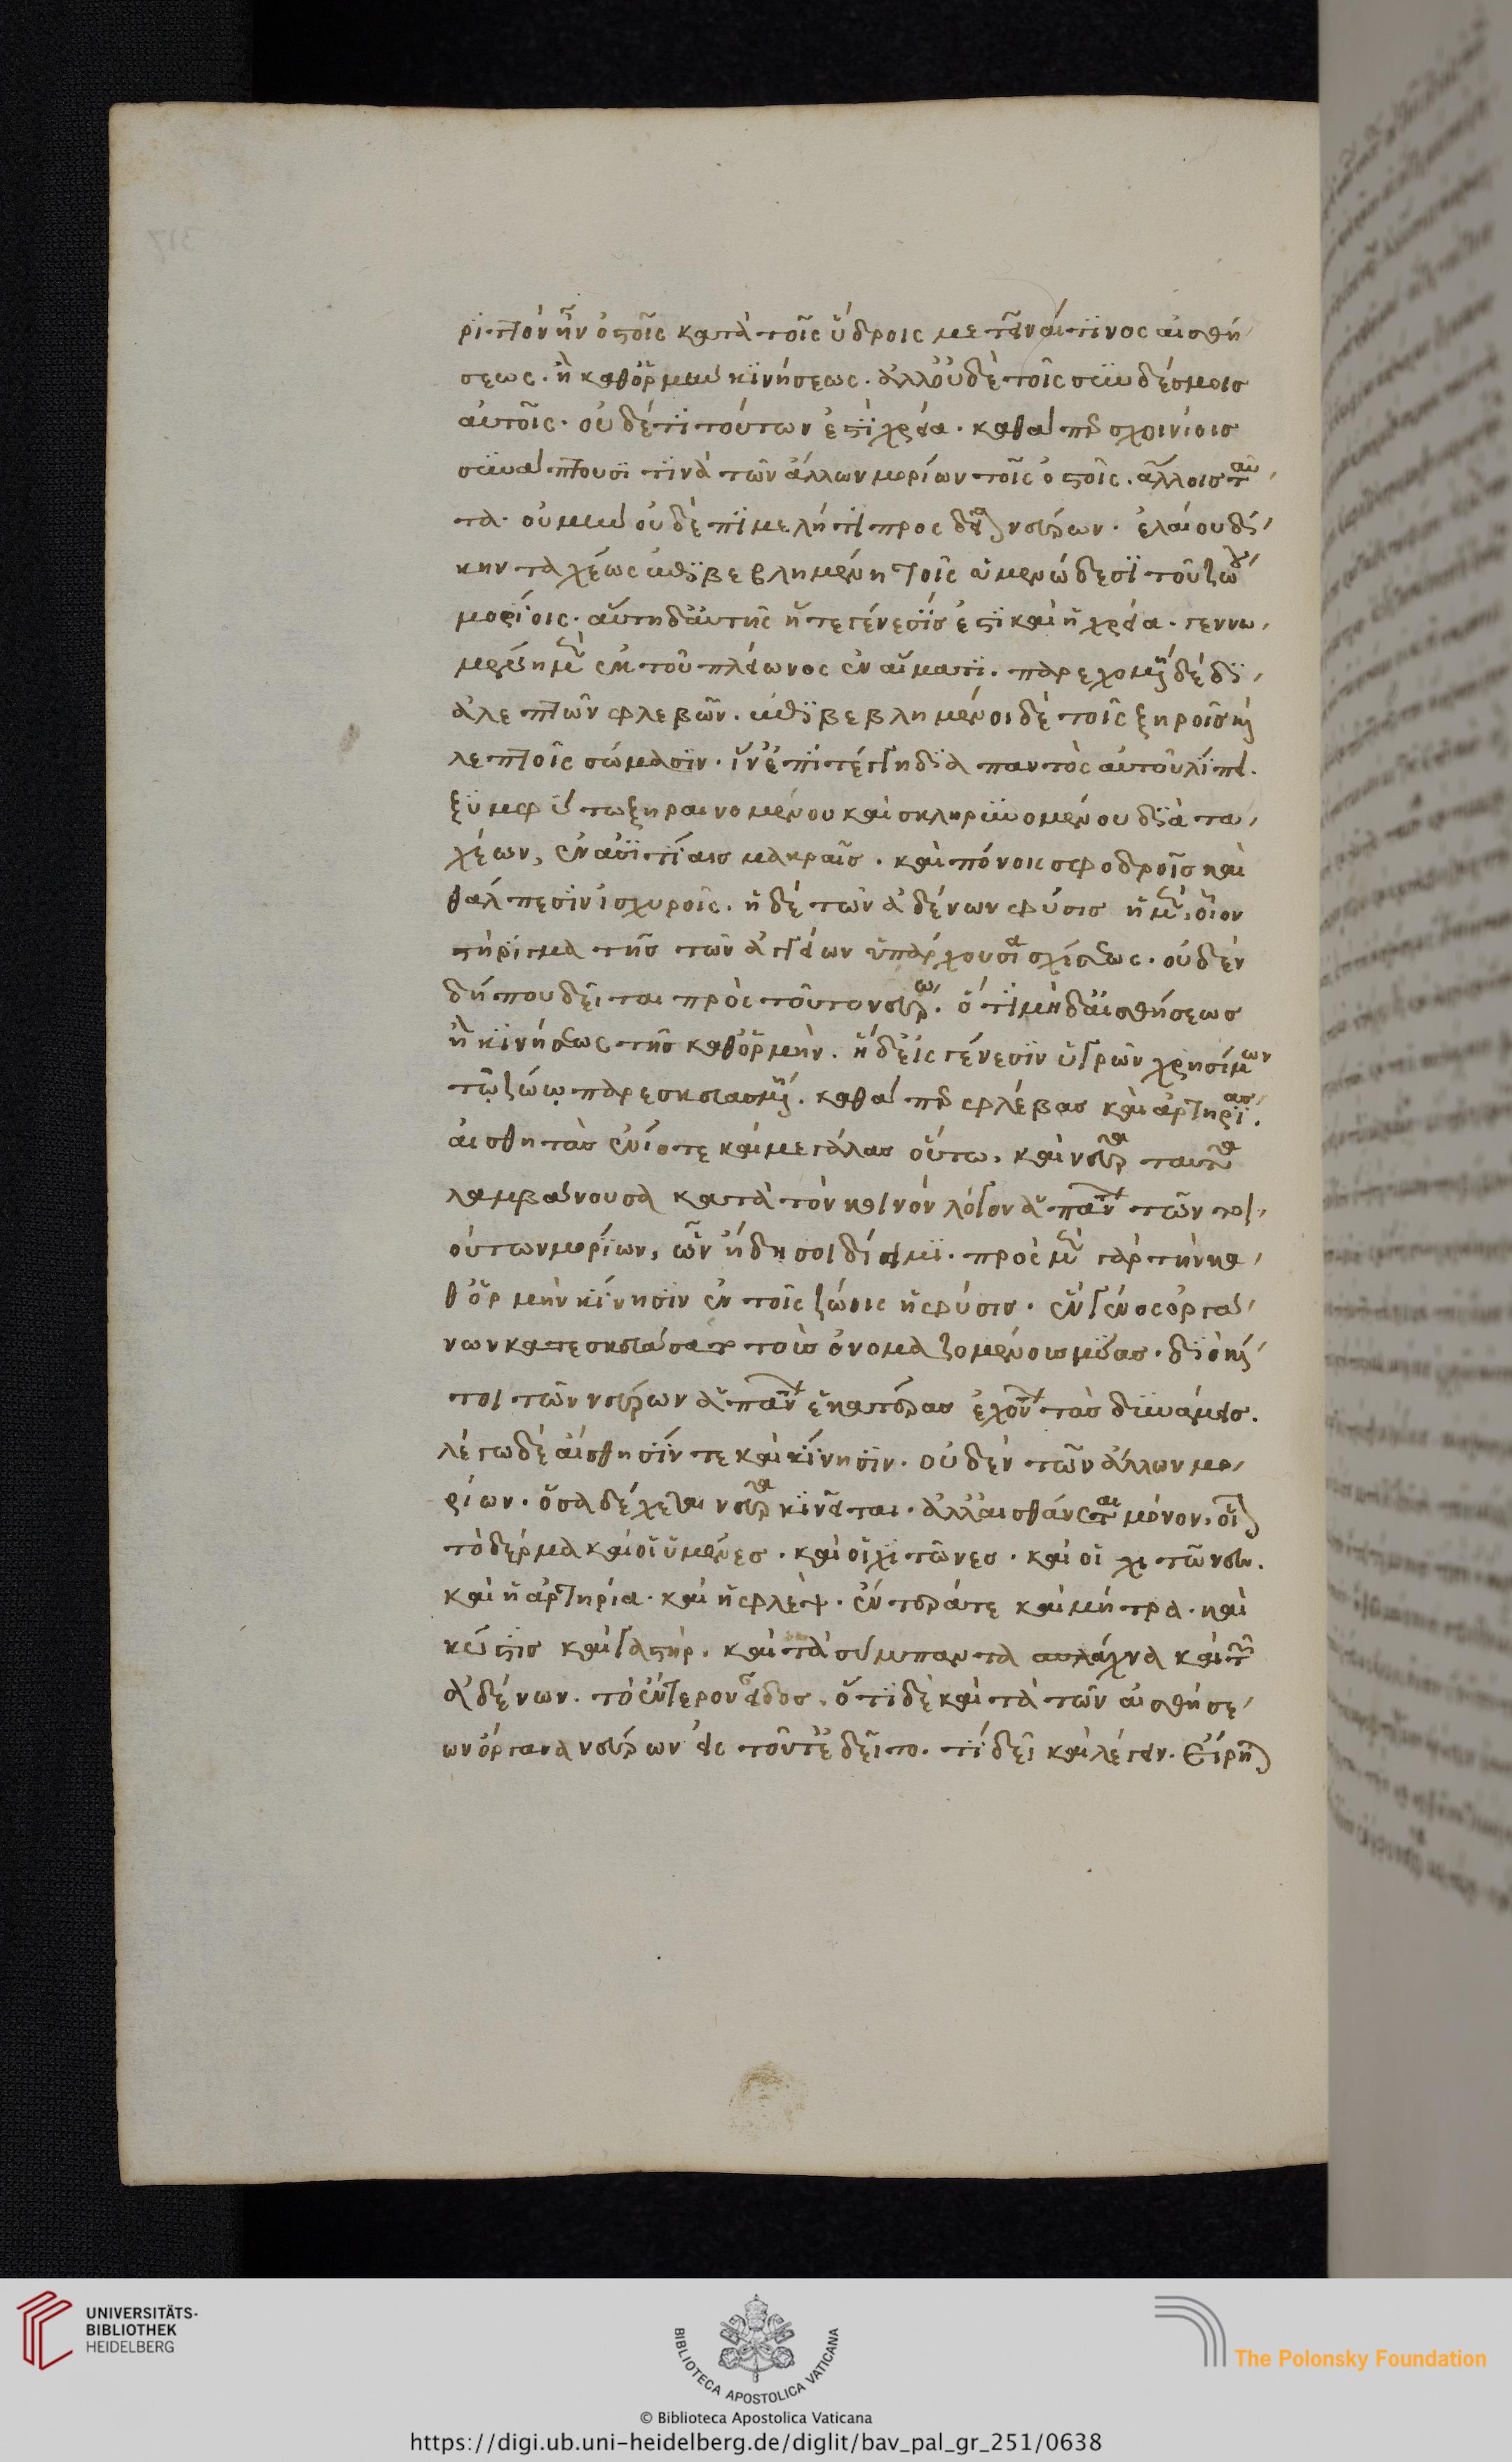 ριττὸν ἦν ὀστοῖς κατὰ τοῖς ὕδροις μετεῖναί τινος αἰσθή
σεως. ἢ καθορμὴν κινήσεως. ἀλλοὐδὲ τοῖς συνδέσμοις
αὐτοῖς. οὐδέ τι τούτων ἐστὶ χρεία. καθάπερ σχοινίοις
συνάπτουσι τινὰ τῶν ἄλλων μορίων τοῖς ὀστοῖς. ἄλλοις ταῦ
τα. οὐ μὴν οὐδὲ πιμελή τι προσδεῖται νεύρων. ἐλαίου δί
κην ταχέως ἐπιβεβλημένη τοῖς ὑμενώδεσι τοῦ ζώου
μορίοις. αὕτη δαυτῆς ἥ τε γένεσίς ἐστι καὶ ἡ χρεία. γεννω
μένη μὲν ἐκ τοῦ πλείωνος ἐν αἵματι. παρεχομένη δὲ δι
ἀλεπτῶν φλεβῶν. ἐπιβεβλημένοι δὲ τοῖς ξηροῖς καὶ
λεπτοῖς σώμασιν. ἵν ἐπιτέγγη διὰ παντὸς αὐτοῦ λίπει.
ξυμφύτω ξηραινομένου καὶ σκληρυνομένου διὰ τα
χέων, ἐν ἀσιτίαις μακραῖς. καὶ πόνοις σφοδροῖς καὶ
θάλπεσιν ἰσχυροῖς. ἡ δὲ τῶν ἀδένων φύσις ἡ μὲν οἷον
στήριγμα τῆς τῶν ἀγγείων ὑπάρχουσα σχίσεως. οὐδὲν
δήπου δεῖται πρὸς τοῦτο νεύρων. ὅτι μὴδ αἰσθήσεως
ἢ κινήσεως τῆς καθορμὴν. ἡ δεἰς γένεσιν ὑγρῶν χρησίμων
τῷ ζώῳ παρεσκευασμένη. καθάπερ φλέβας καὶ ἀρτηρίας.
αἰσθητὰς ἐνίοτε καὶ μεγάλας οὕτω. καὶ νεῦρα ταῦτα
λαμβάνουσα κατὰ τὸν κοινὸν λόγον ἁπάντων τῶν τοι
ούτων μορίων, ὧν ἤδη σοι δίειμι. πρὸς μὲν γὰρ τὴν κα
θορμὴν κίνησιν ἐν τοῖς ζώοις ἡ φύσις. ἓν γένος ὀργά
νων κατεσκευάσατο τοὺς ὀνομαζομένους μύας. διὸ καί
τοι τῶν νεύρων ἁπάντων ἑκατέρας ἐχόντων τὰς δυνάμεις.
λέγω δὲ αἴσθησίν τε καὶ κίνησιν. οὐδὲν τῶν ἄλλων μο
ρίων. ὅσα δέχεται νεῦρα κινεῖται. ἀλλαἰσθάνεται μόνον. οἷον
τὸ δέρμα καὶ οἱ ὑμένες. καὶ οἱ χιτῶνες. καὶ οἱ χιτῶνες.
καὶ ἡ ἀρτηρία. καὶ ἡ φλὲψ. ἔντερά τε καὶ μήτρα. καὶ
κύστις καὶ γαστήρ. καὶ τὰ σύμπαντα σπλάγχνα καὶ τῶν
ἀδένων. τὸ ἕτερον εἶδος. ὅτι δὲ καὶ τὰ τῶν αἰσθήσε
ων ὄργανα νεύρων εἰς τοῦτ ἐδεῖτο. τί δεῖ καὶ λέγειν. Εἴρηται
UNIVERSITÄTS-
BIBLIOTHEK
HEIDELBERG
BIBLIOTECA APOSTOLICA VATICANA
The Polonsky Foundation
© Biblioteca Apostolica Vaticana
https://digi.ub.uni-heidelberg.de/diglit/bav_pal_gr_251/0638